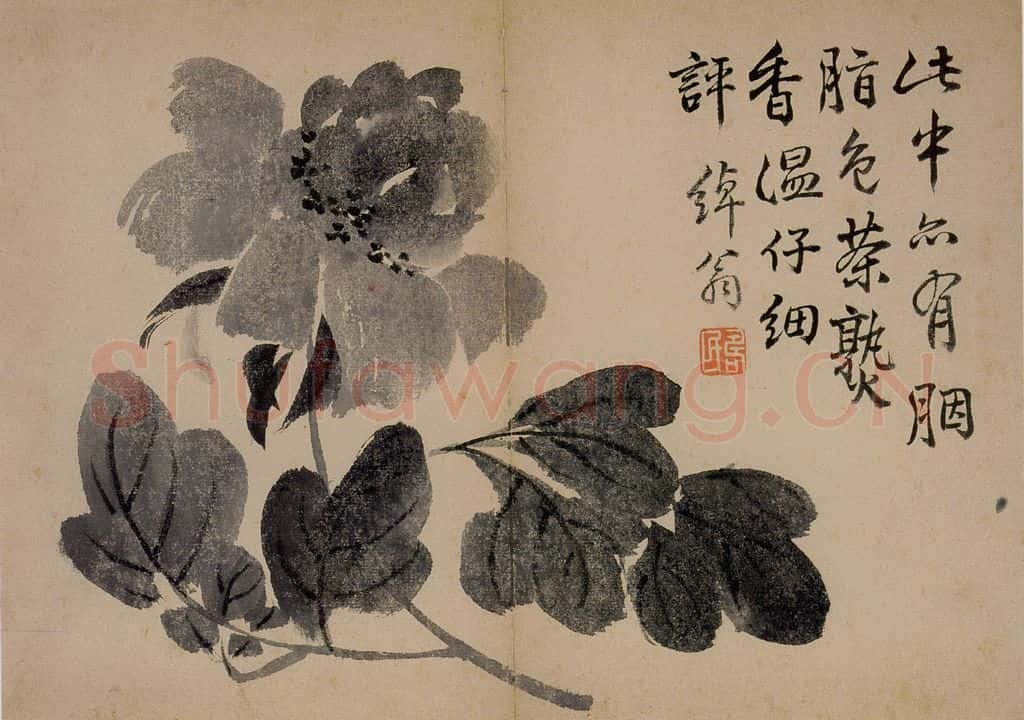 此中亦有胭
脂色茶熟
香温仔細
評 綽翁
Shufawang.CN